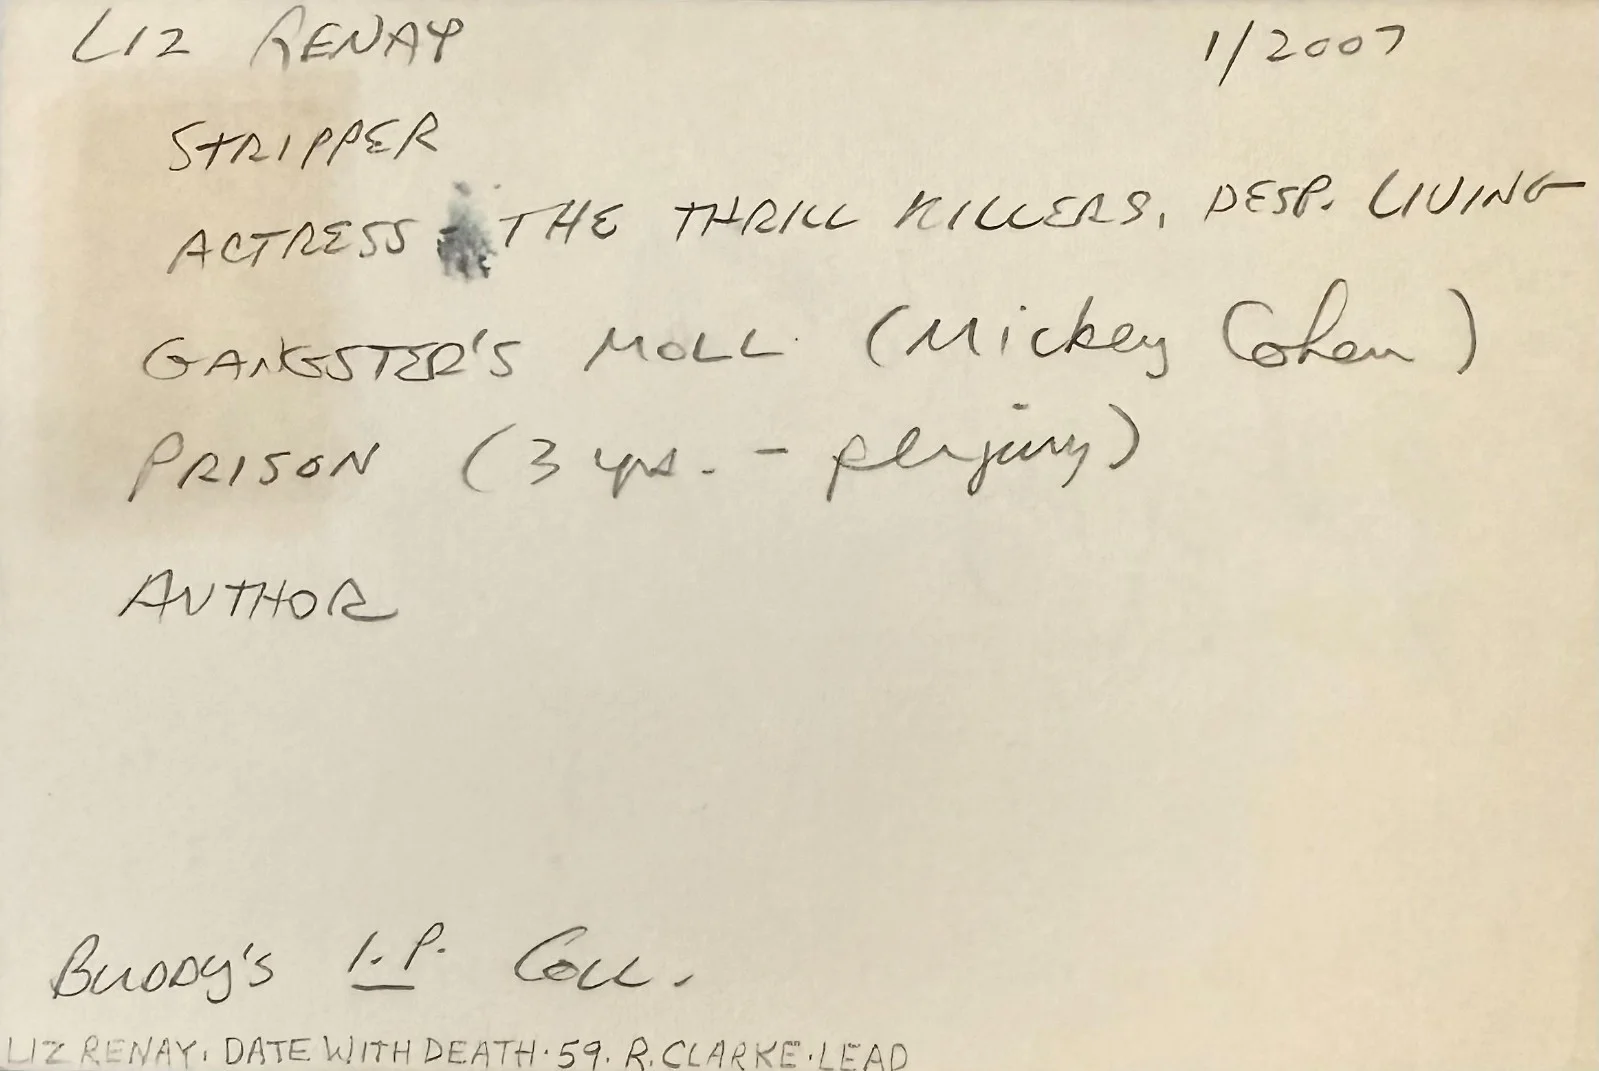 LIZ RENAY 1/2007
STRIPPER
ACTRESS - THE THRILL KILLERS, DESP. LIVING
GANGSTER'S MOLL (Mickey Cohen)
PRISON (3 yrs. - perjury)
AUTHOR
BUDDY'S I.P. COLL.
LIZ RENAY. DATE WITH DEATH. 59. R. CLARKE. LEAD